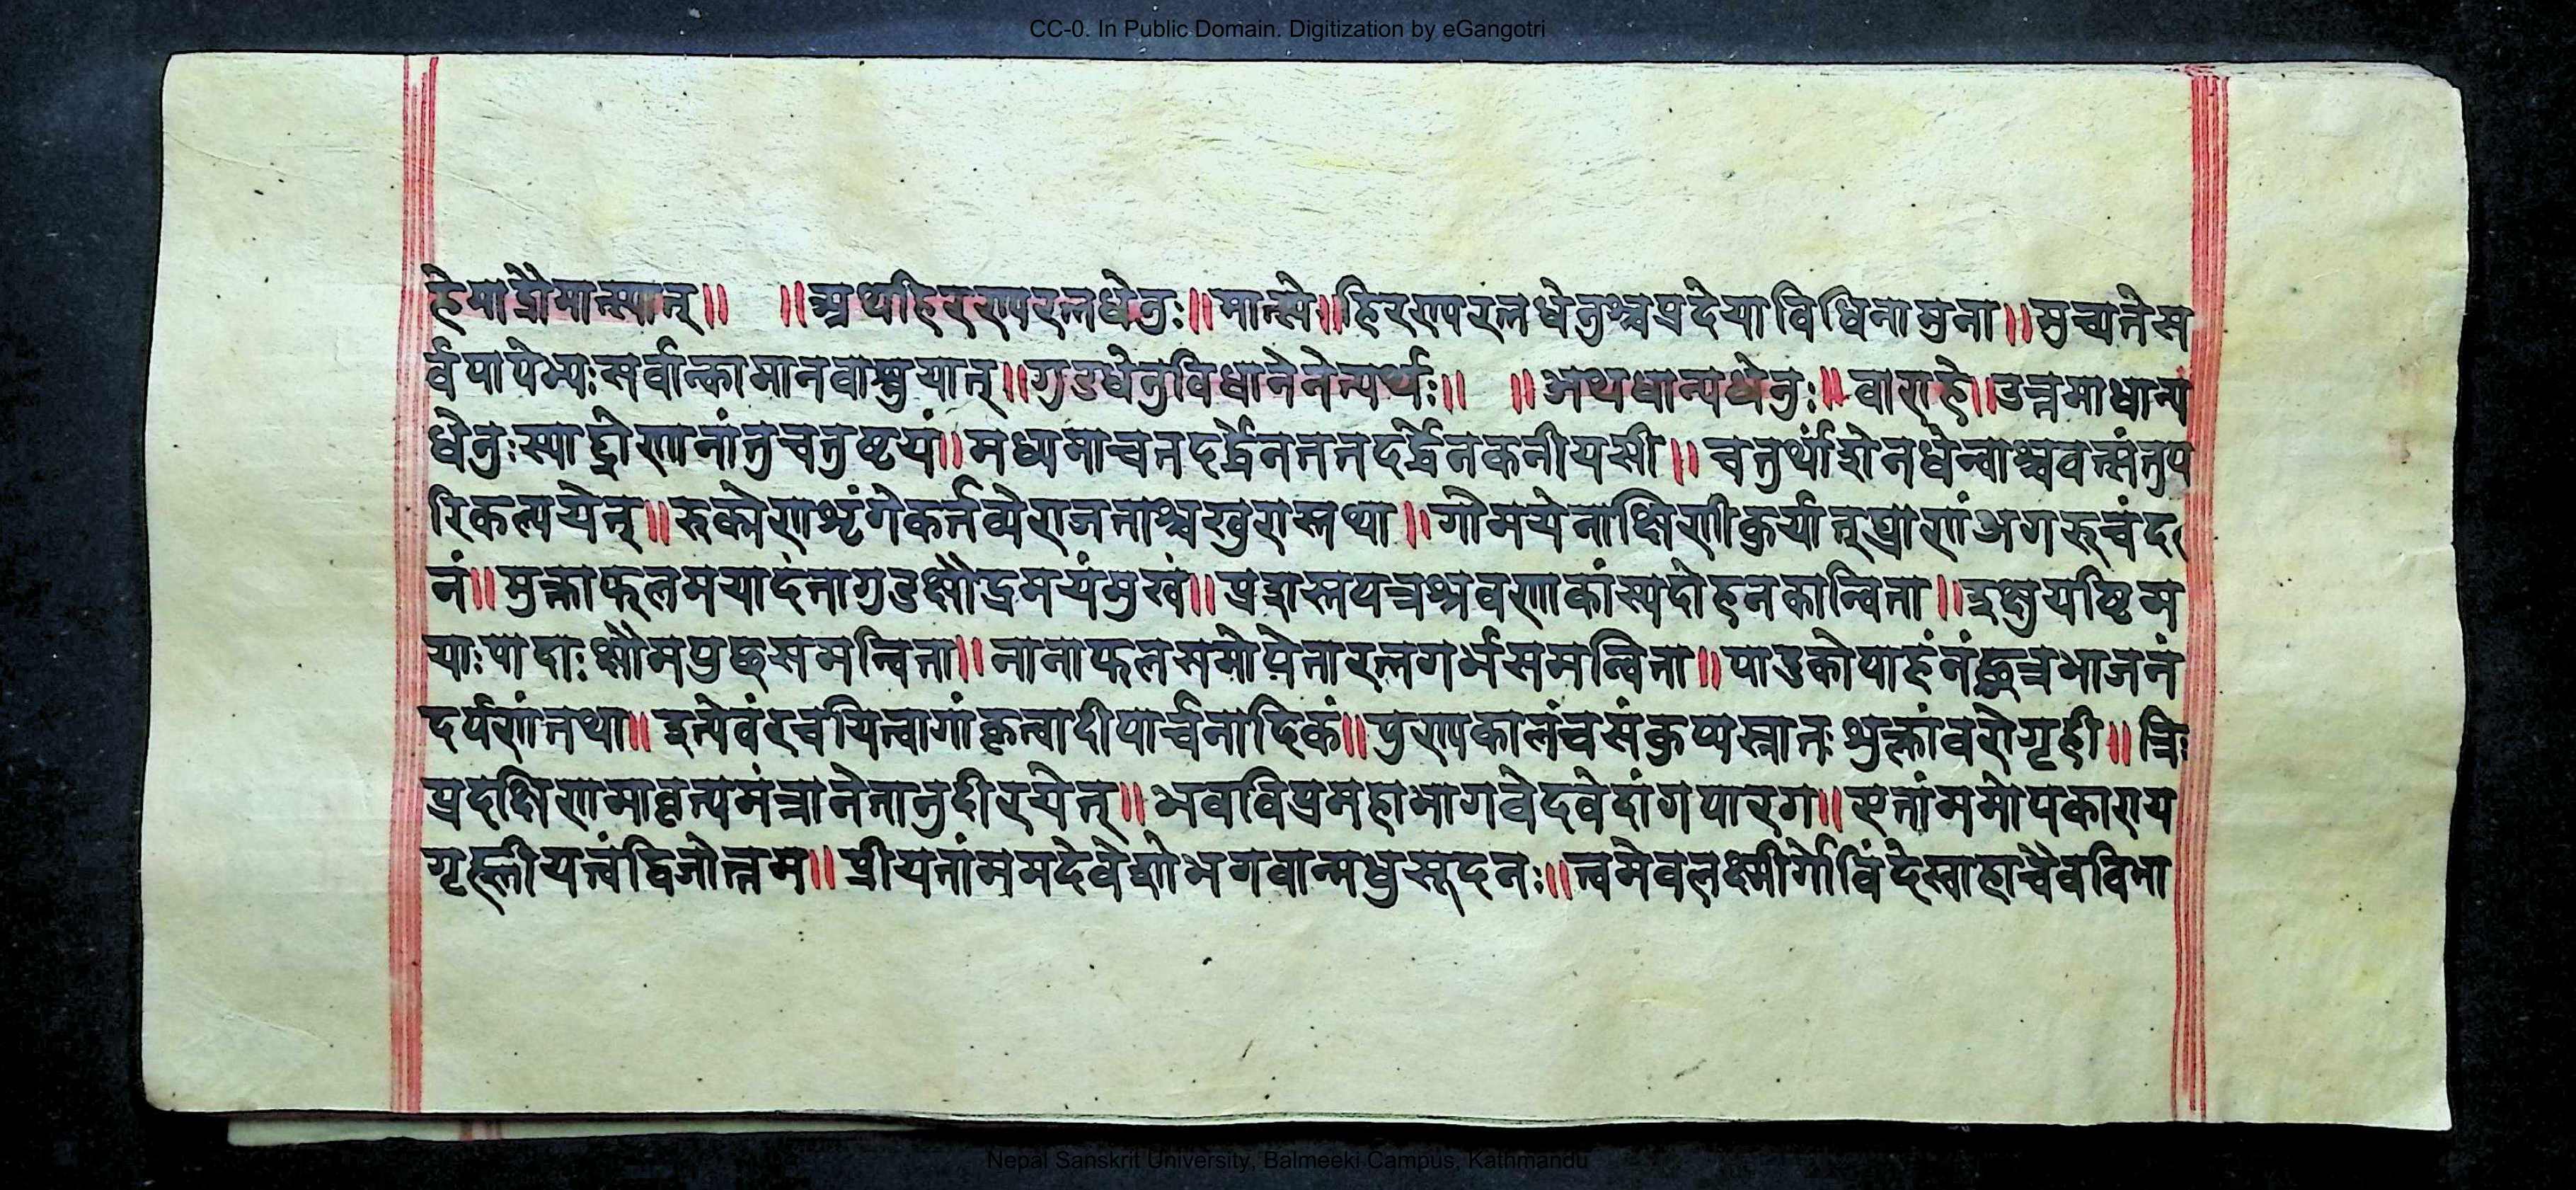 CC-0. In Public Domain. Digitization by eGangotri
हेमाद्रौमात्स्यात्॥ ॥अथहिरण्यरत्नधेनुः॥मात्स्ये॥हिरण्यरत्नधेनुश्चप्रदेयाविधिनामुना॥मुच्यतेस
र्वपापेभ्यःसर्वान्कामानवाप्नुयात्॥गुडधेनुविधानेनेत्यर्थः॥ ॥अथधान्यधेनुः॥वाराहे॥उत्तमाधान्य
धेनुःस्याद्द्रोणानांतुचतुष्टयं॥मध्यमाचतदर्द्धेनततदर्द्धेनकनीयसी॥चतुर्थांशेनधेन्वाश्चवत्संतुप
रिकल्पयेत्॥रुक्मेणशृंगेकर्तव्येराजताश्चखुरास्तथा॥गोमयेनाक्षिणीकुर्यात्घ्राणंअगरुचंद
नं॥मुक्ताफलमयादंतागुडक्षौद्रमयंमुखं॥प्रशस्तपत्रश्रवणाकांस्यदोहनकान्विता॥इक्षुयष्टिम
याःपादाःक्षौमपुछसमन्विता॥नानाफलसमोपेतारत्नगर्भसमन्विता॥पादुकोपाहंनंछत्रभाजनं
दर्पणंतथा॥इत्येवंरचयित्वागांकृत्वादीपार्चनादिकं॥पुण्यकालंचसंकुप्यस्नातःशुक्लांवरोगृही॥त्रिः
प्रदक्षिणामावृत्यमंत्रानेतानुदीरयेत्॥भवविप्रमहाभागवेदवेदांगपारग॥एतांममोपकाराय
गृह्णीयत्वंद्विजोत्तम॥प्रीयतांममदेवेशोभगवान्मधुसूदनः॥त्वमेवलक्ष्मीर्गोविंदेस्वाहाचैवविभा
Nepal Sanskrit University, Balmeeki Campus, Kathmandu